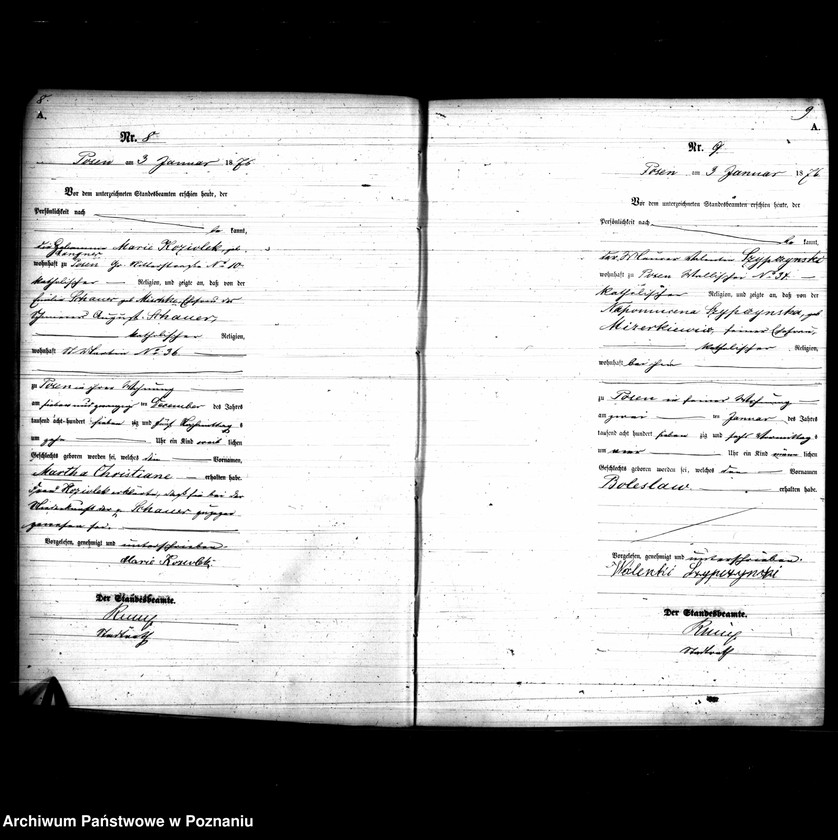 8.
A.
Nr. 8
Posen am 3 Januar 1876
Vor dem unterzeichneten Standesbeamten erschien heute, der
Persönlichkeit nach
be kannt,
die Hebamme Marie Koziolek, geb.
wohnhaft zu Posen Gr. No 10
katholischer Religion, und zeigte an, daß von der
Emilie Schauer geb. Ehefrau des
August Schauer,
katholischer Religion,
wohnhaft St Martin No 36
zu Posen in ihrer Wohnung
am sieben und zwanzig ten December des Jahres
tausend acht-hundert sieben zig und fünf Nachmittag s
um zehn Uhr ein Kind weib lichen
Geschlechts geboren worden sei, welches die Vornamen,
Martha Christiane erhalten habe.
Frau Koziolek erklärte, daß sie bei der
Niederkunft der Schauer zugegen
gewesen sei.
Vorgelesen, genehmigt und unterschrieben.
Marie Koziolek
Der Standesbeamte.
Stadtrath
9
A.
Nr. 9
Posen am 3 Januar 1876
Vor dem unterzeichneten Standesbeamten erschien heute, der
Persönlichkeit nach
be kannt,
der Maurer Valentin Szypczynski
wohnhaft zu Posen Wallischei No 37.
katholischer Religion, und zeigte an, daß von der
Napomucena Szypczynska, geb
Mizerkiewicz, seiner Ehefrau,
katholischer Religion,
wohnhaft bei ihm
zu Posen in seiner Wohnung
am zwei ten Januar des Jahres
tausend acht hundert sieben zig und sechs Vormittag s
um Uhr ein Kind männ lichen
Geschlechts geboren worden sei, welches den Vornamen
Boleslaw. erhalten habe.
Vorgelesen, genehmigt und unterschrieben.
Walenti Szypczynski
Der Standesbeamte.
Stadtrath
Archiwum Państwowe w Poznaniu